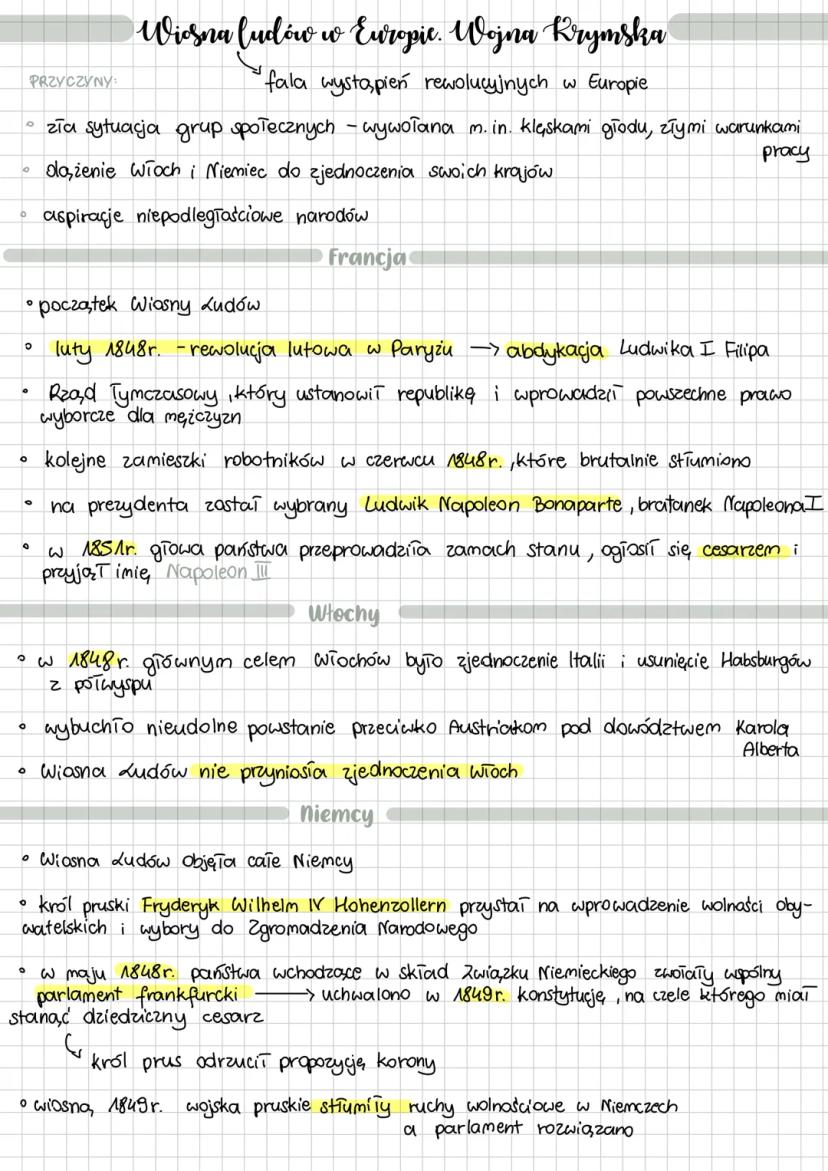 Wiosna ludów w Europie. Wojna Krymska
PRZYCZYNY:
fala wystąpień rewolucyjnych w Europie
zła sytuacja grup społecznych - wywołana m. in. klęskami głodu, złymi warunkami
pracy
dążenie Włoch i Niemiec do zjednoczenia swoich krajów
aspiracje niepodległościowe narodów
Francja
początek Wiosny Ludów
luty 1848r. - rewolucja lutowa w Paryżu → abdykacja Ludwika I Filipa
Rząd Tymczasowy, który ustanowił republikę i wprowadził powszechne prawo
wyborcze dla mężczyzn
kolejne zamieszki robotników w czerwcu 1848r., które brutalnie stłumiono
na prezydenta został wybrany Ludwik Napoleon Bonaparte, bratanek Napoleona I
w 1851r. głowa państwa przeprowadziła zamach stanu, ogłosił się cesarzem i
przyjął imię Napoleon III
Włochy
w 1848r. głównym celem Włochów było zjednoczenie Italii i usunięcie Habsburgów
z półwyspu
wybuchło nieudolne powstanie przeciwko Austriakom pod dowództwem Karola
Alberta
Wiosna Ludów nie przyniosła zjednoczenia Włoch
Niemcy
Wiosna Ludów objęła całe Niemcy
król pruski Fryderyk Wilhelm IV Hohenzollern przystał na wprowadzenie wolności oby-
watelskich i wybory do Zgromadzenia Narodowego
w maju 1848r. państwa wchodzące w skład Związku Niemieckiego zwołały wspólny
parlament frankfurcki → uchwalono w 1849r. konstytucję, na czele którego miał
stanąć dziedziczny cesarz
król prus odrzucił propozycję korony
wiosną 1849r. wojska pruskie stłumiły ruchy wolnościowe w Niemczech
a parlament rozwiązano